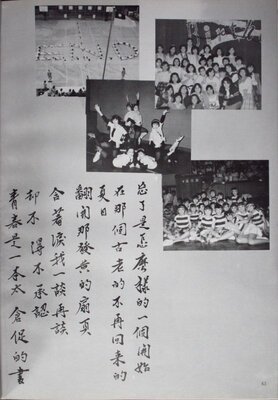 忘了是怎麼樣的一個開始
在那個古老的不再回來的
夏日
翻開那發黃的扉頁
含著淚我一讀再讀
却不得不承認
青春是一本太倉促的書
63